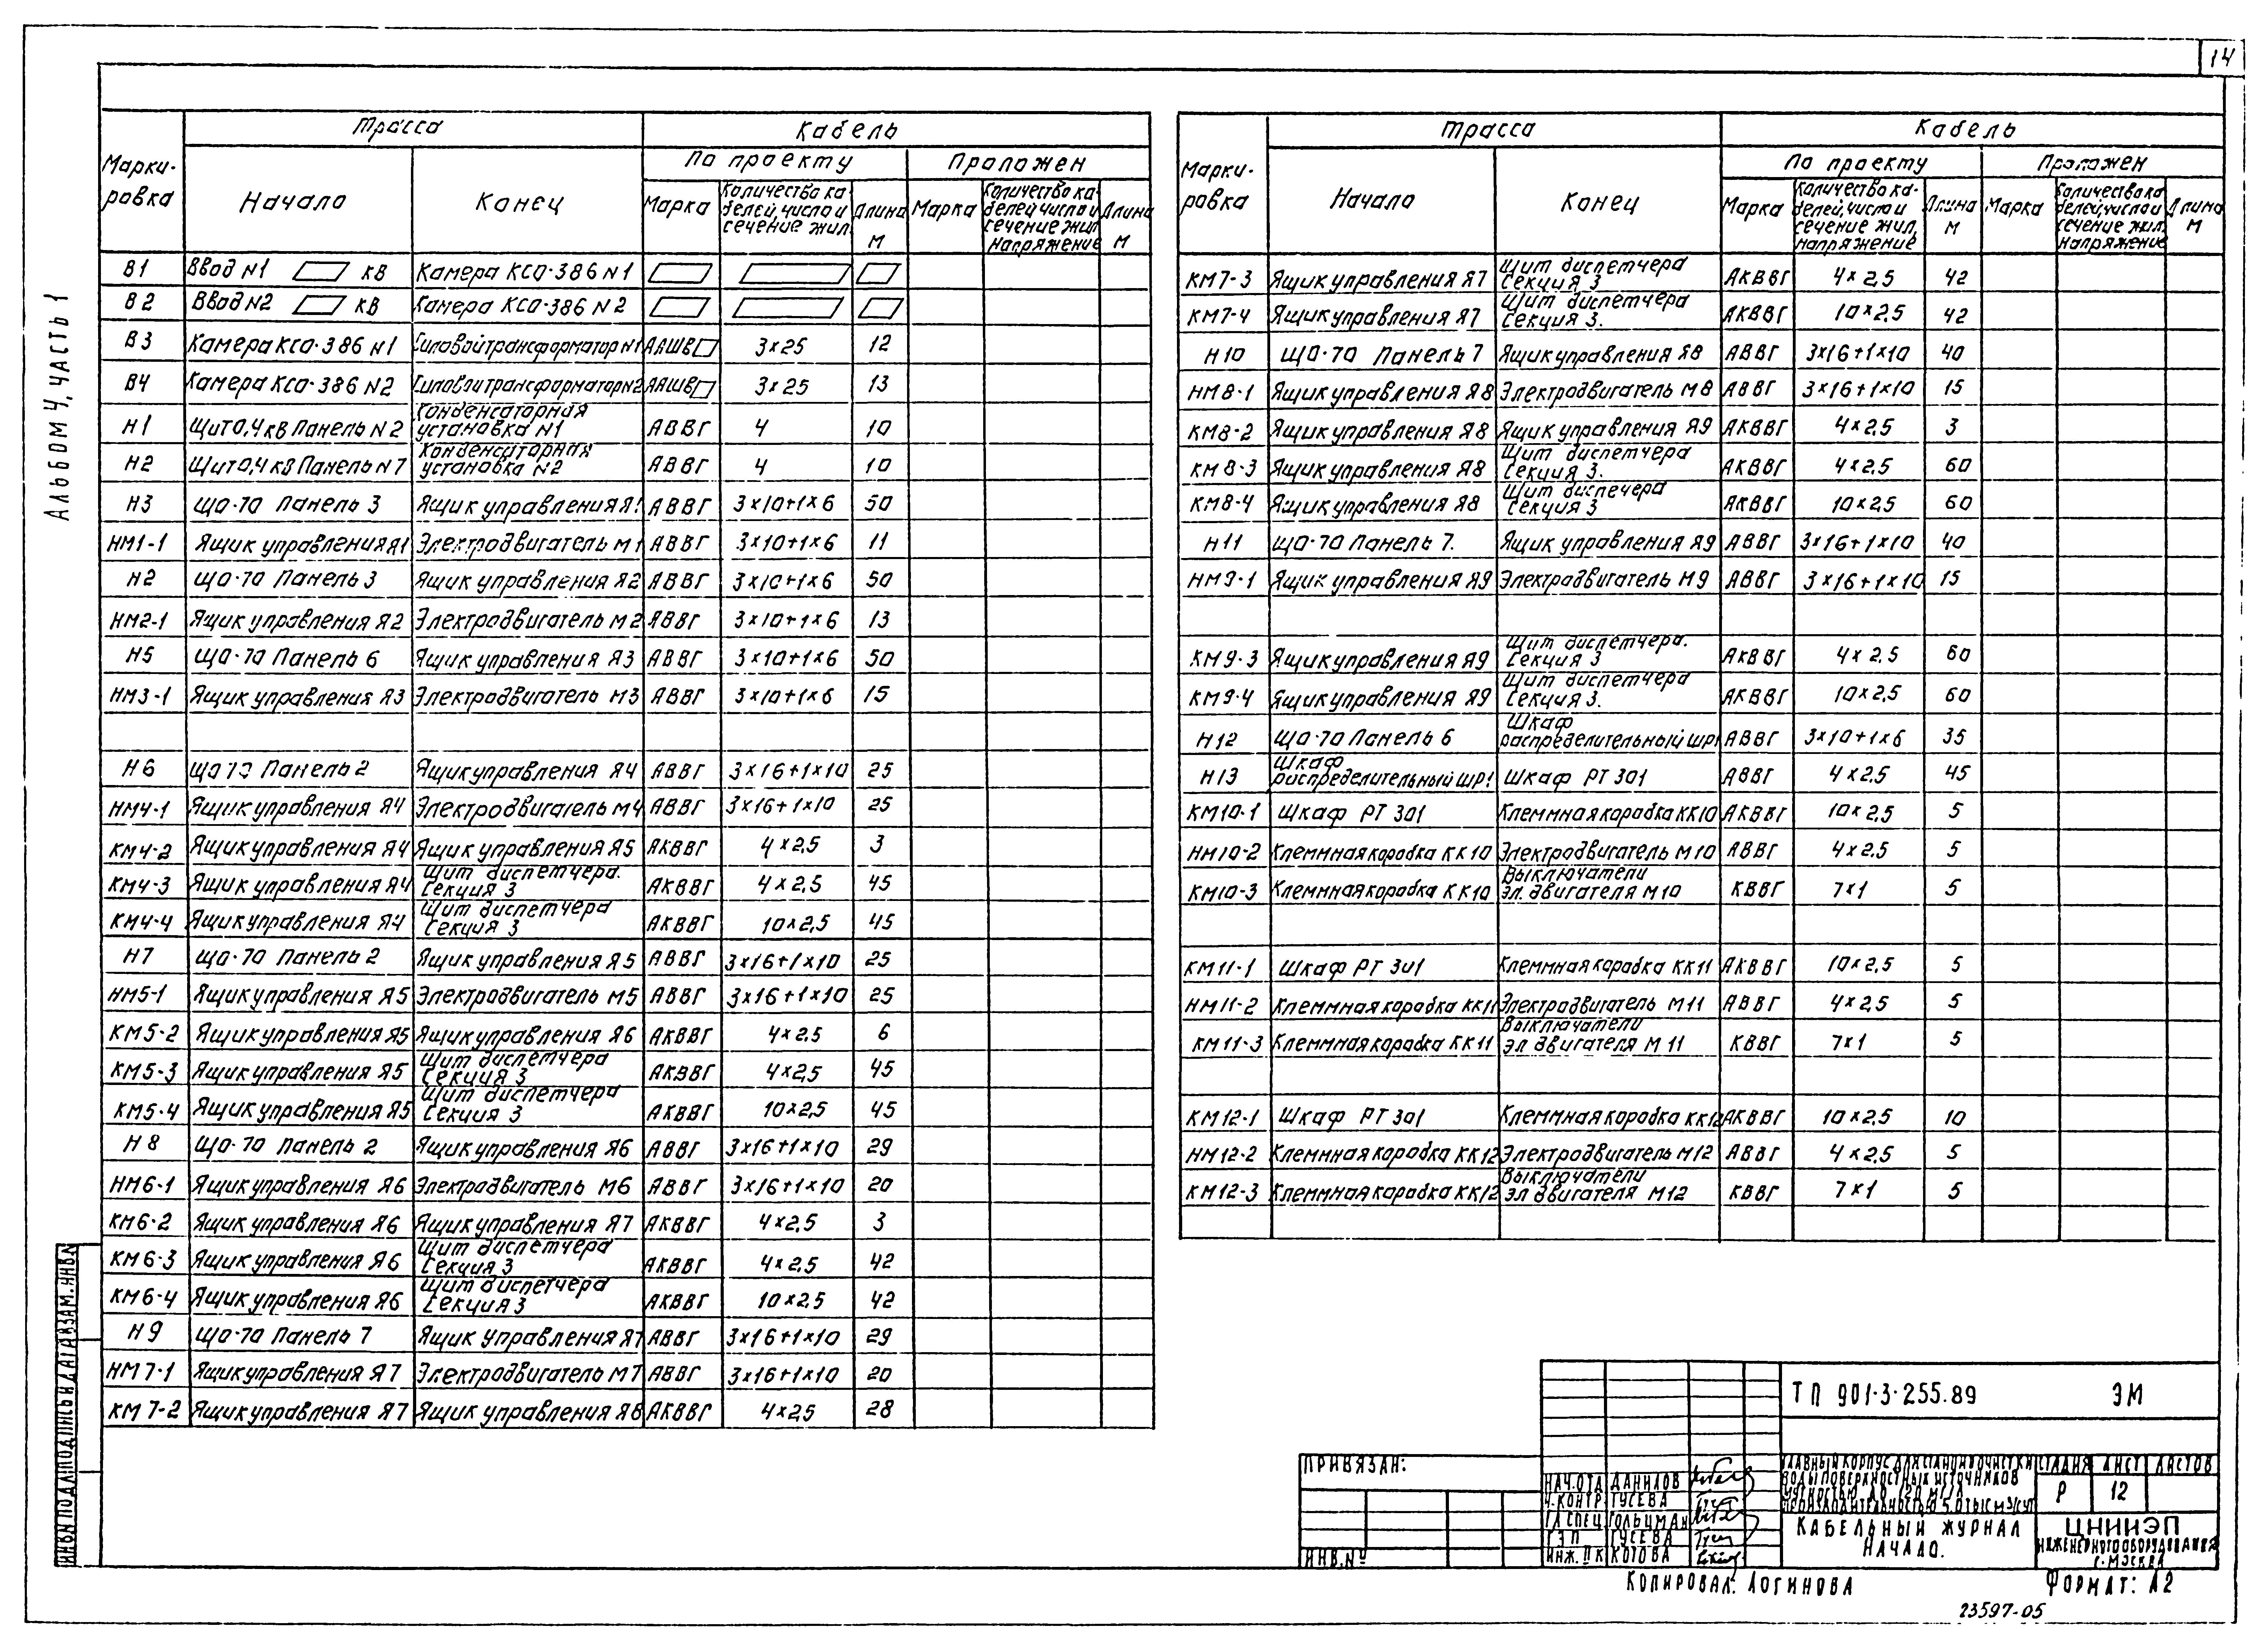 14
АЛЬБОМ 4, ЧАСТЬ 1
Марки-ровка | Трасса | Кабель
По проекту | Проложен
Начало | Конец | Марка | Количество ка-белей, число и сечение жил. | Длина м | Марка | Количество ка-белей число и сечение жил. Напряжение | Длина м
В1 | Ввод N1 кв | Камера КСО-386 N1
В2 | Ввод N2 кв | Камера КСО-386 N2
В3 | Камера КСО-386 N1 | Силовой трансформатор N1 | ААШВ | 3×25 | 12
В4 | Камера КСО-386 N2 | Силовой трансформатор N2 | ААШВ | 3×25 | 13
Н1 | Щит 0,4 кв Панель N2 | Конденсаторная установка N1 | АВВГ | 4 | 10
Н2 | Щит 0,4 кв Панель N7 | Конденсаторная установка N2 | АВВГ | 4 | 10
Н3 | ЩО-70 Панель 3 | Ящик управления Я1 | АВВГ | 3×10+1×6 | 50
НМ1-1 | Ящик управления Я1 | Электродвигатель М1 | АВВГ | 3×10+1×6 | 11
Н2 | ЩО-70 Панель 3 | Ящик управления Я2 | АВВГ | 3×10+1×6 | 50
НМ2-1 | Ящик управления Я2 | Электродвигатель М2 | АВВГ | 3×10+1×6 | 13
Н5 | ЩО-70 Панель 6 | Ящик управления Я3 | АВВГ | 3×10+1×6 | 50
НМ3-1 | Ящик управления Я3 | Электродвигатель М3 | АВВГ | 3×10+1×6 | 15
Н6 | ЩО 70 Панель 2 | Ящик управления Я4 | АВВГ | 3×16+1×10 | 25
НМ4-1 | Ящик управления Я4 | Электродвигатель М4 | АВВГ | 3×16+1×10 | 25
КМ4-2 | Ящик управления Я4 | Ящик управления Я5 | АКВВГ | 4×2,5 | 3
КМ4-3 | Ящик управления Я4 | Щит диспетчера. Секция 3 | АКВВГ | 4×2,5 | 45
КМ4-4 | Ящик управления Я4 | Щит диспетчера Секция 3 | АКВВГ | 10×2,5 | 45
Н7 | ЩО-70 Панель 2 | Ящик управления Я5 | АВВГ | 3×16+1×10 | 25
НМ5-1 | Ящик управления Я5 | Электродвигатель М5 | АВВГ | 3×16+1×10 | 25
КМ5-2 | Ящик управления Я5 | Ящик управления Я6 | АКВВГ | 4×2,5 | 6
КМ5-3 | Ящик управления Я5 | Щит диспетчера Секция 3 | АКВВГ | 4×2,5 | 45
КМ5-4 | Ящик управления Я5 | Щит диспетчера Секция 3 | АКВВГ | 10×2,5 | 45
Н8 | ЩО-70 Панель 2 | Ящик управления Я6 | АВВГ | 3×16+1×10 | 29
НМ6-1 | Ящик управления Я6 | Электродвигатель М6 | АВВГ | 3×16+1×10 | 20
КМ6-2 | Ящик управления Я6 | Ящик управления Я7 | АКВВГ | 4×2,5 | 3
КМ6-3 | Ящик управления Я6 | Щит диспетчера Секция 3 | АКВВГ | 4×2,5 | 42
КМ6-4 | Ящик управления Я6 | Щит диспетчера Секция 3 | АКВВГ | 10×2,5 | 42
Н9 | ЩО-70 Панель 7 | Ящик управления Я7 | АВВГ | 3×16+1×10 | 29
НМ7-1 | Ящик управления Я7 | Электродвигатель М7 | АВВГ | 3×16+1×10 | 20
КМ7-2 | Ящик управления Я7 | Ящик управления Я8 | АКВВГ | 4×2,5 | 28
Марки-ровка | Трасса | Кабель
По проекту | Проложен
Начало | Конец | Марка | Количество ка-белей, число и сечение жил, напряжение | Длина м | Марка | Количество ка белей, число и сечение жил. Напряжение | Длина м
КМ7-3 | Ящик управления Я7 | Щит диспетчера Секция 3 | АКВВГ | 4×2,5 | 42
КМ7-4 | Ящик управления Я7 | Щит диспетчера Секция 3. | АКВВГ | 10×2,5 | 42
Н10 | ЩО-70 Панель 7 | Ящик управления Я8 | АВВГ | 3×16+1×10 | 40
НМ8-1 | Ящик управления Я8 | Электродвигатель М8 | АВВГ | 3×16+1×10 | 15
КМ8-2 | Ящик управления Я8 | Ящик управления Я9 | АКВВГ | 4×2,5 | 3
КМ8-3 | Ящик управления Я8 | Щит диспетчера Секция 3. | АКВВГ | 4×2,5 | 60
КМ8-4 | Ящик управления Я8 | Щит диспечера Секция 3 | АКВВГ | 10×2,5 | 60
Н11 | ЩО-70 Панель 7. | Ящик управления Я9 | АВВГ | 3×16+1×10 | 40
НМ9-1 | Ящик управления Я9 | Электродвигатель М9 | АВВГ | 3×16+1×10 | 15
КМ9-3 | Ящик управления Я9 | Щит диспетчера. Секция 3 | АКВВГ | 4×2,5 | 60
КМ9-4 | Ящик управления Я9 | Щит диспетчера Секция 3. | АКВВГ | 10×2,5 | 60
Н12 | ЩО-70 Панель 6 | Шкаф распределительный ШР1 | АВВГ | 3×10+1×6 | 35
Н13 | Шкаф распределительный ШР1 | Шкаф РТ 301 | АВВГ | 4×2,5 | 45
КМ10-1 | Шкаф РТ 301 | Клеммная коробка КК10 | АКВВГ | 10×2,5 | 5
НМ10-2 | Клеммная коробка КК10 | Электродвигатель М10 | АВВГ | 4×2,5 | 5
КМ10-3 | Клеммная коробка КК10 | Выключатели эл. двигателя М10 | КВВГ | 7×1 | 5
КМ11-1 | Шкаф РТ 301 | Клеммная коробка КК11 | АКВВГ | 10×2,5 | 5
НМ11-2 | Клеммная коробка КК11 | Электродвигатель М11 | АВВГ | 4×2,5 | 5
КМ11-3 | Клеммная коробка КК11 | Выключатели эл двигателя М11 | КВВГ | 7×1 | 5
КМ12-1 | Шкаф РТ 301 | Клеммная коробка КК12 | АКВВГ | 10×2,5 | 10
НМ12-2 | Клеммная коробка КК12 | Электродвигатель М12 | АВВГ | 4×2,5 | 5
КМ12-3 | Клеммная коробка КК12 | Выключатели эл двигателя М12 | КВВГ | 7×1 | 5
ИНВ N ПОДЛ | ПОДПИСЬ И ДАТА | ВЗАМ. ИНВ N
ПРИВЯЗАН:
ИНВ. №
ТП 901-3-255.89 ЭМ
НАЧ. ОТД | ДАНИЛОВ
Н. КОНТР | ГУСЕВА
ГЛ СПЕЦ | ГОЛЬЦМАН
ГЭП | ГУСЕВА
ИНЖ. II К | КОТОВА
ГЛАВНЫЙ КОРПУС ДЛЯ СТАНЦИИ ОЧИСТКИ
ВОДЫ ПОВЕРХНОСТНЫХ ИСТОЧНИКОВ
МУТНОСТЬЮ ДО 120 МГ/Л
ПРОИЗВОДИТЕЛЬНОСТЬЮ 5,0 ТЫС М3/СУТ
СТАДИЯ | ЛИСТ | ЛИСТОВ
Р | 12
КАБЕЛЬНЫЙ ЖУРНАЛ
НАЧАЛО.
ЦНИИЭП
ИНЖЕНЕРНОГО ОБОРУДОВАНИЯ
Г. МОСКВА
КОПИРОВАЛ: ЛОГИНОВА
ФОРМАТ: А2
23597-05